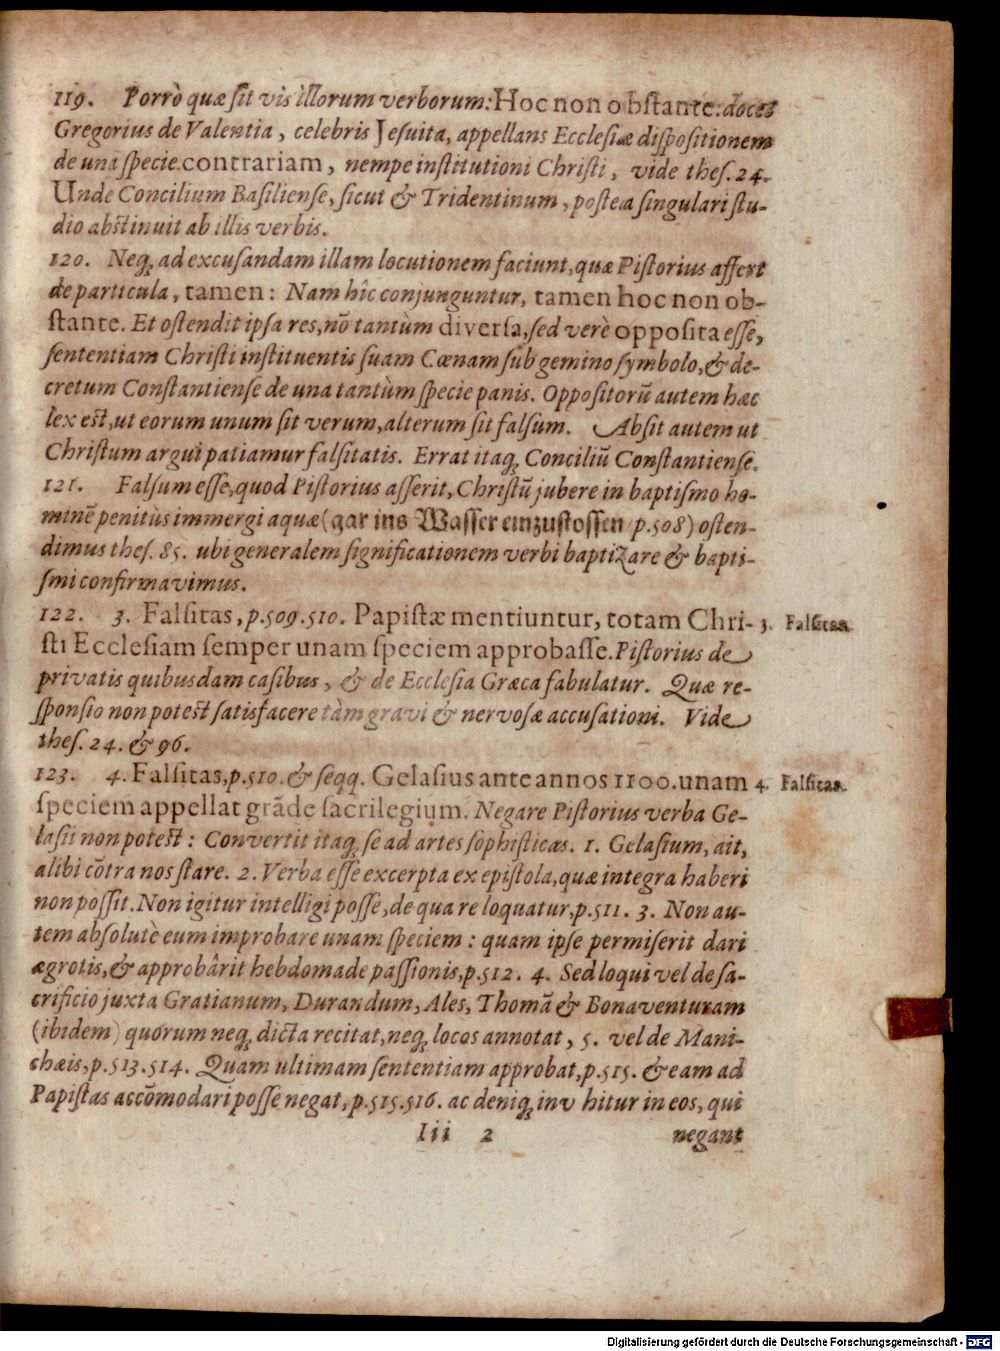 119. Porrò quæ sit vis illorum verborum: Hoc non obstante: docet
Gregorius de Valentia, celebris Jesuita, appellans Ecclesiæ dispositionem
de una specie contrariam, nempe institutioni Christi, vide thes. 24.
Unde Concilium Basiliense, sicut & Tridentinum, postea singulari stu-
dio abstinuit ab illis verbis.
120. Neq; ad excusandam illam locutionem faciunt, quæ Pistorius affert
de particula, tamen: Nam hîc conjunguntur, tamen hoc non ob-
stante. Et ostendit ipsa res, nõ tantùm diversa, sed verè opposita esse,
sententiam Christi instituentis suam Cœnam sub gemino symbolo, & de-
cretum Constantiense de una tantùm specie panis. Oppositorũ autem hæc
lex est, ut eorum unum sit verum, alterum sit falsum. Absit autem ut
Christum argui patiamur falsitatis. Errat itaq; Conciliũ Constantiense.
121. Falsum esse, quod Pistorius asserit, Christũ jubere in baptismo ho-
minẽ penitùs immergi aquæ (gar ins Wasser einzustossen p. 508) osten-
dimus thes. 85. ubi generalem significationem verbi baptizare & bapti-
smi confirmavimus.
122. 3. Falsitas, p. 509. 510. Papistæ mentiuntur, totam Chri-
sti Ecclesiam semper unam speciem approbasse. Pistorius de
privatis quibusdam casibus, & de Ecclesia Græca fabulatur. Quæ re-
sponsio non potest satisfacere tàm gravi & nervosæ accusationi. Vide
thes. 24. & 96.
3. Falsitas.
123. 4. Falsitas, p. 510. & seqq. Gelasius ante annos 1100. unam
speciem appellat grãde sacrilegium. Negare Pistorius verba Ge-
lasii non potest: Convertit itaq; se ad artes sophisticas. 1. Gelasium, ait,
alibi cõtra nos stare. 2. Verba esse excerpta ex epistola, quæ integra haberi
non possit. Non igitur intelligi posse, de qua re loquatur, p. 511. 3. Non au-
tem absolutè eum improbare unam speciem: quam ipse permiserit dari
ægrotis, & approbârit hebdomade passionis, p. 512. 4. Sed loqui vel de sa-
crificio juxta Gratianum, Durandum, Ales, Thomã & Bonaventuram
(ibidem) quorum neq; dicta recitat, neq; locos annotat, 5. vel de Mani-
chæis, p. 513. 514. Quam ultimam sententiam approbat, p. 515. & eam ad
Papistas accõmodari posse negat, p. 515. 516. ac deniq; inv hitur in eos, qui
4. Falsitas.
Iii 2
negant
Digitalisierung gefördert durch die Deutsche Forschungsgemeinschaft - DFG